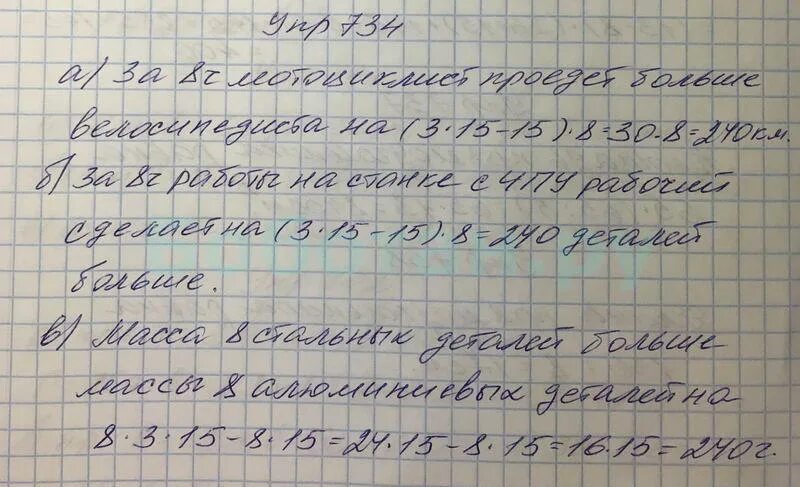 Упр 734
а) За 8ч мотоциклист проедет больше
велосипедиста на (3·15-15)·8=30·8=240км.
б) За 8ч работы на станке с ЧПУ рабочий
сделает на (3·15-15)·8=240 деталей
больше.
в) Масса 8 стальных деталей больше
массы 8 алюминиевых деталей на
8·3·15-8·15=24·15-8·15=16·15=240г.